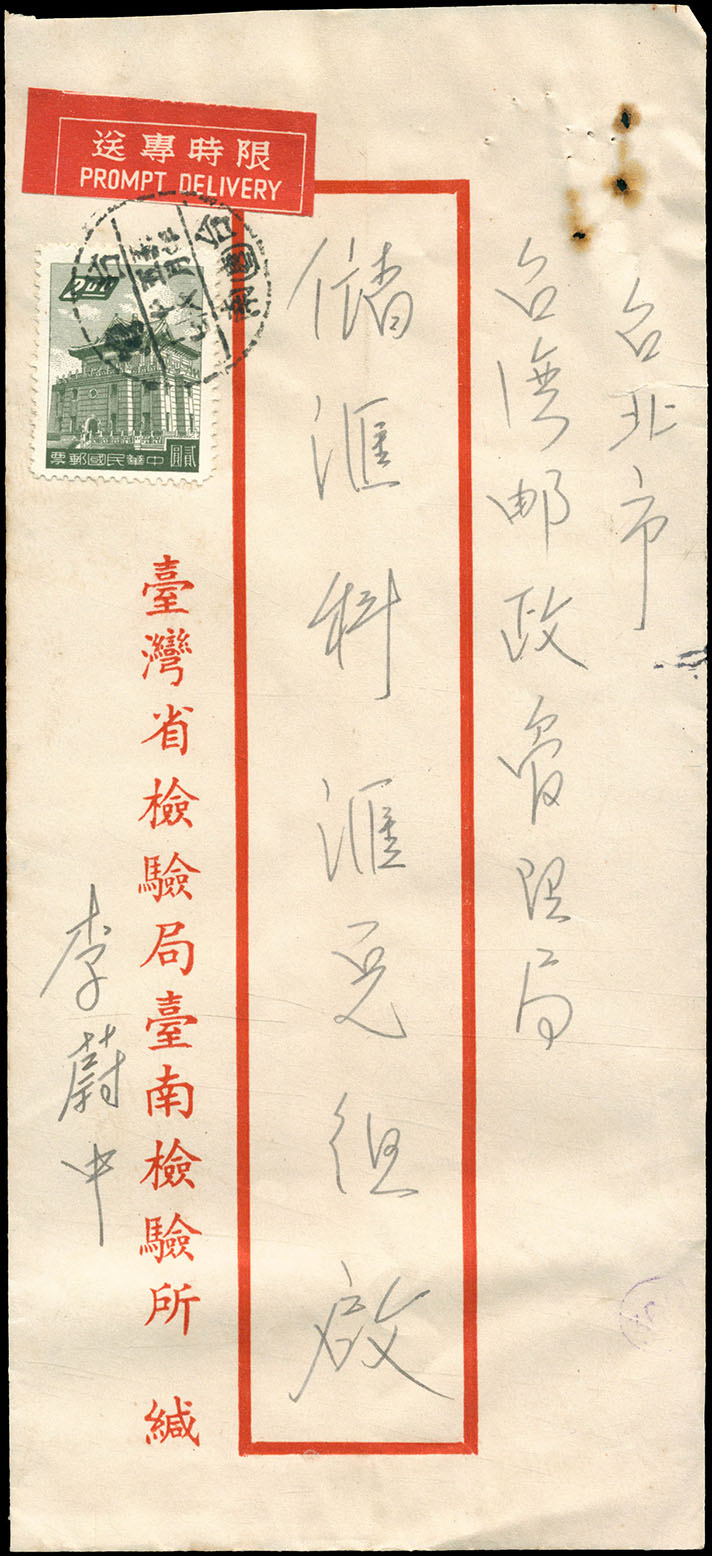 限時專送
PROMPT DELIVERY
台北市
台湾邮政管理局
儲滙科滙兌組啟
2.00
貳圓
中華民國郵票
臺灣省檢驗局臺南檢驗所 緘
李蔚中